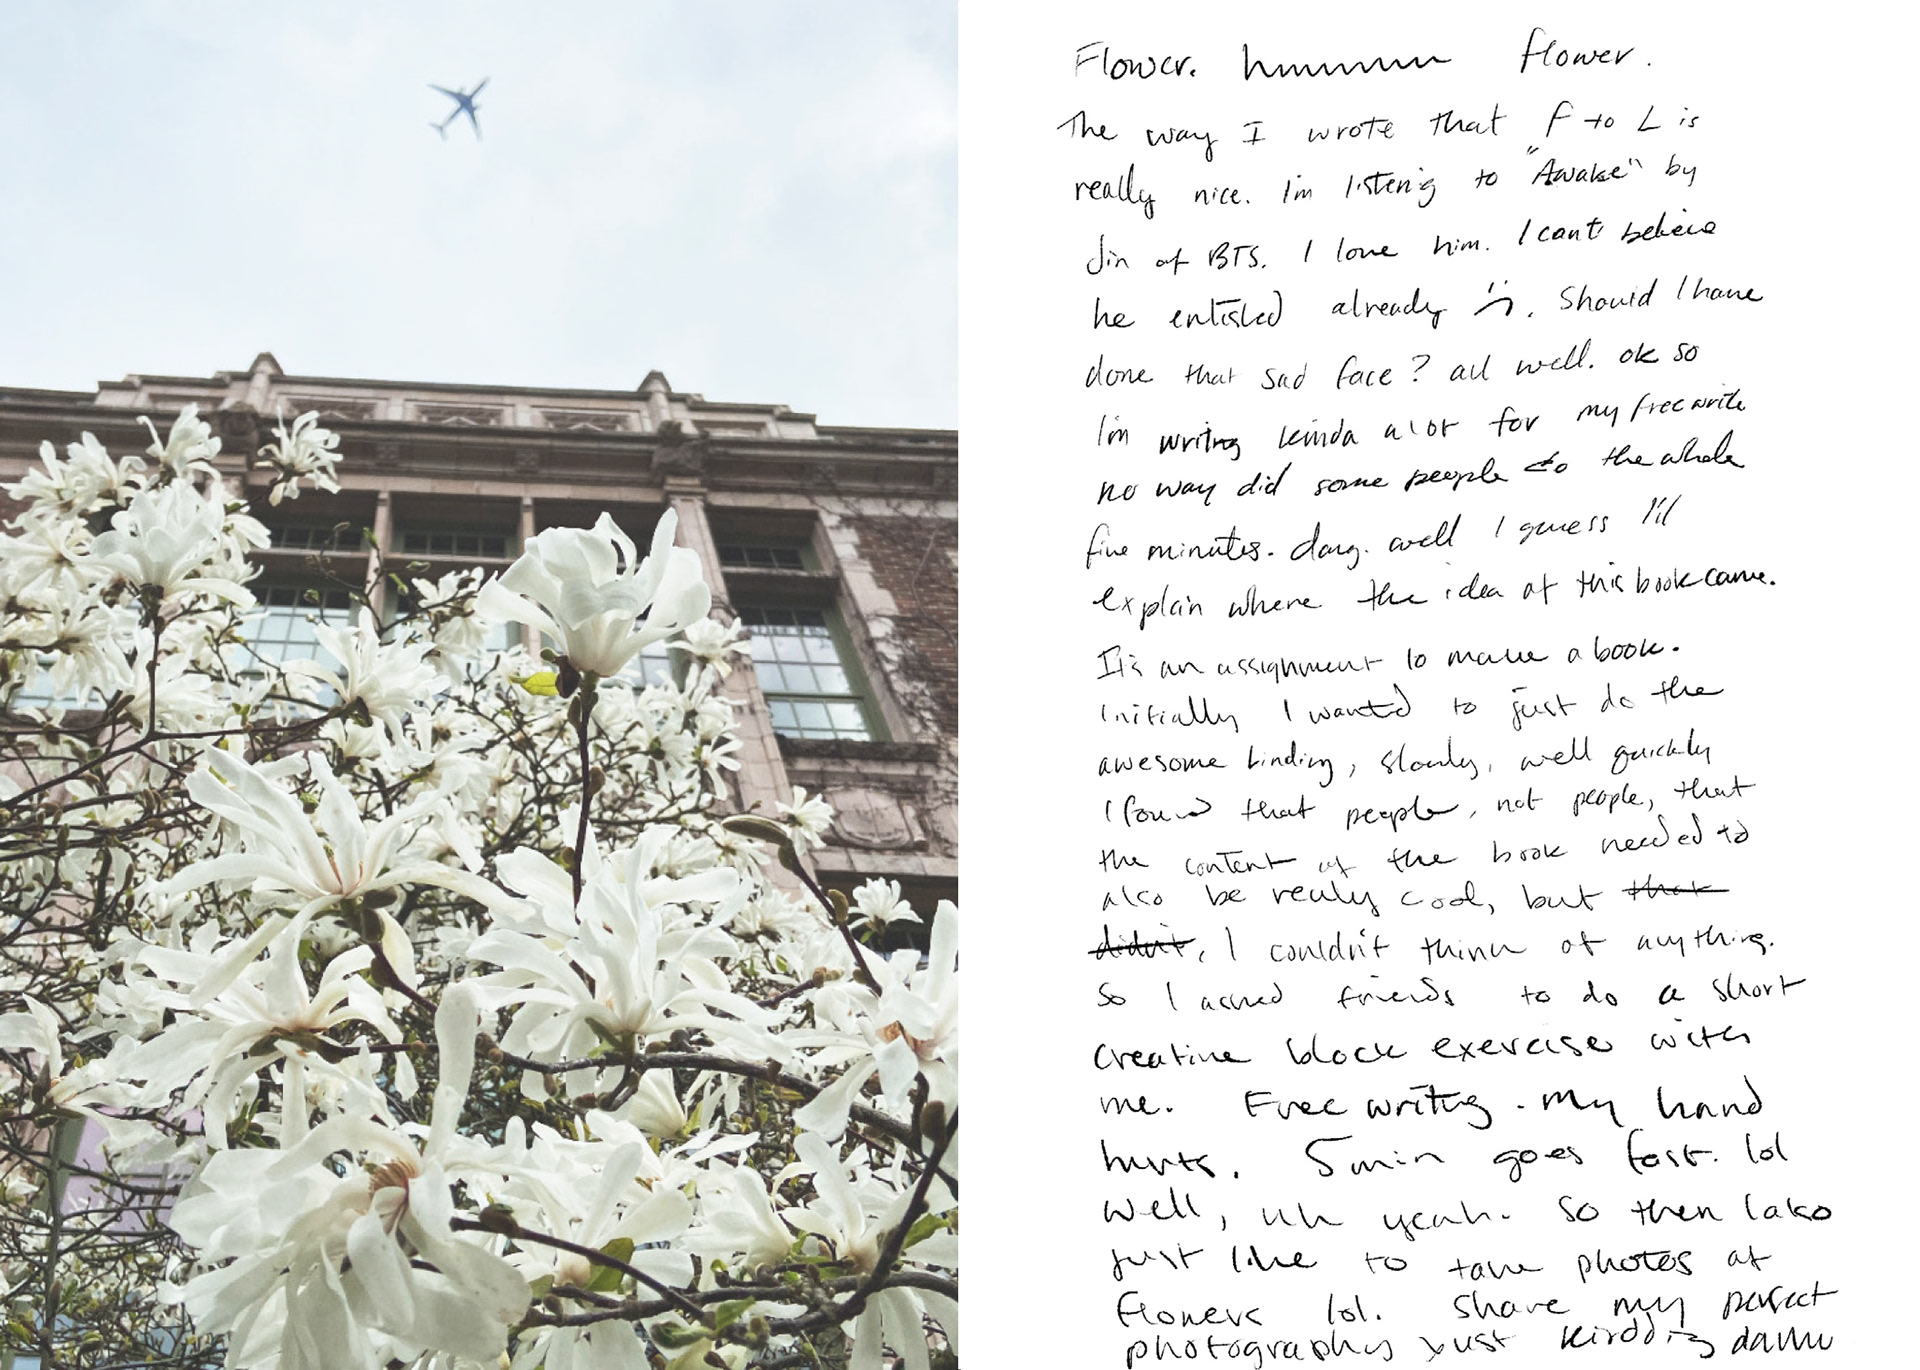 Flower. hmmmmm flower.
The way I wrote that F to L is
really nice. I'm listen'g to "Awake" by
Jin of BTS. I love him. I can't believe
he enlisted already :(. Should I have
done that sad face? all well. ok so
I'm writing kinda alot for my freewrite
no way did some people do the whole
five minutes. dang. well I guess I'll
explain where the idea of this book came.
It's an assignment to make a book.
Initially I wanted to just do the
awesome binding, slowly, well quickly
I found that people, not people, that
the content of the book needed to
also be really cool, but that
didn't, I couldn't think of anything.
So I asked friends to do a short
creative block exercise with
me. Free writing. My hand
hurts. 5 min goes fast. lol
well, uh yeah. So then I also
just like to take photos of
flowers lol. Share my perfect
photography just kidding